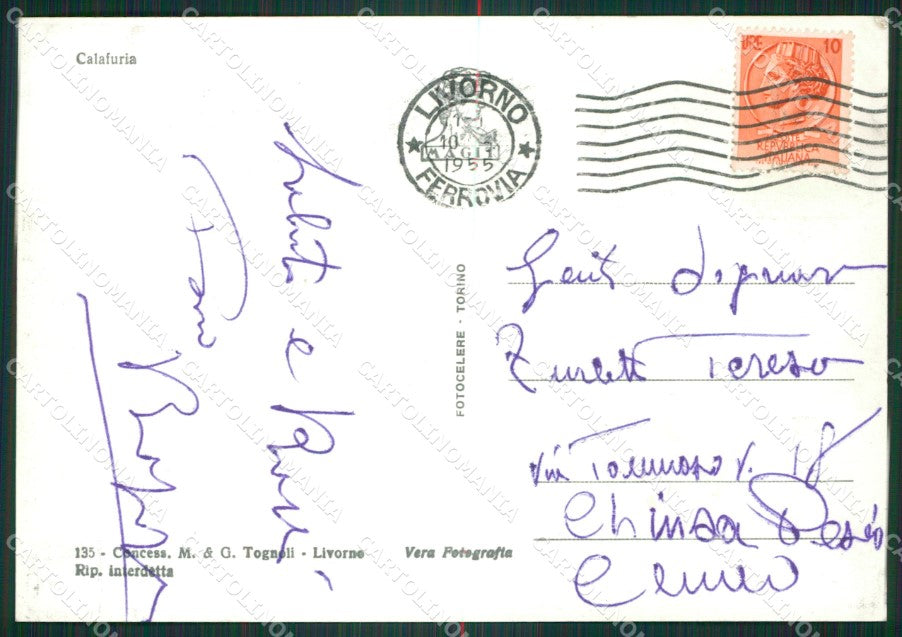 Calafuria
LIVORNO
10
MAG
1955
FERROVIA
LIRE 10
REPVBBLICA
ITALIANA
Saluti e
FOTOCELERE - TORINO
Gent. Signora
Teresa
via Tommaso V. 18
Chiusa Pesio
Cuneo
135 - Concess. M. & G. Tognoli - Livorno
Rip. interdetta
Vera Fotografia
CARTOLINOMANIA